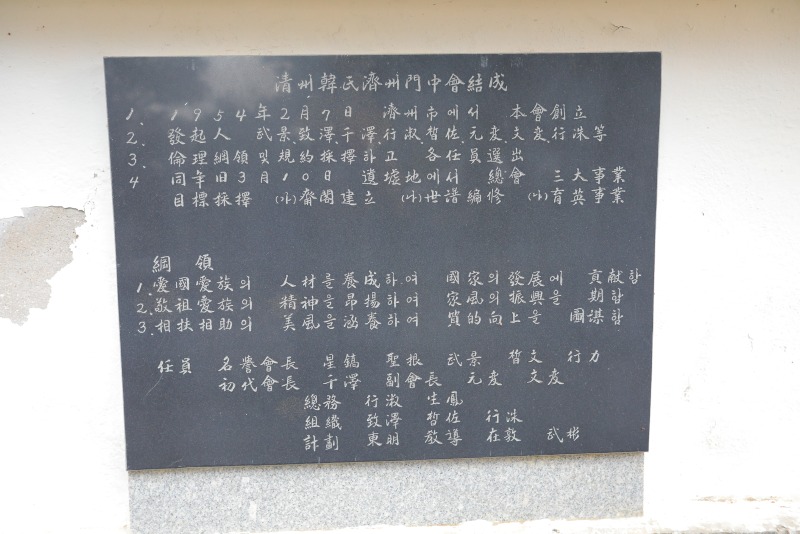 清州韓氏濟州門中會結成
1. 1954年2月7日 濟州市에서 本會創立
2. 發起人 武景 致澤 千澤 行淑 晳佐 元変 文変 行洙 等
3. 倫理綱領 및 規約採擇 하고 各任員選出
4 同年旧3月10日 遺墟地에서 總會 三大事業
目標採擇 (가)齋閣建立 (나)世譜編修 (다)育英事業
綱領
1. 愛國愛族의 人材을 養成하여 國家의 發展에 貢献함
2. 敬祖愛族의 精神을 昻揚하여 家風의 振興을 期함
3. 相扶相助의 美風을 涵養하여 質的向上을 圖謀함
任員 名譽會長 星鎬 聖根 武景 晳文 行力
初代會長 千澤 副會長 元変 文変
總務 行淑 生鳳
組織 致澤 晳佐 行洙
計劃 東明 敎導 在敦 武彬